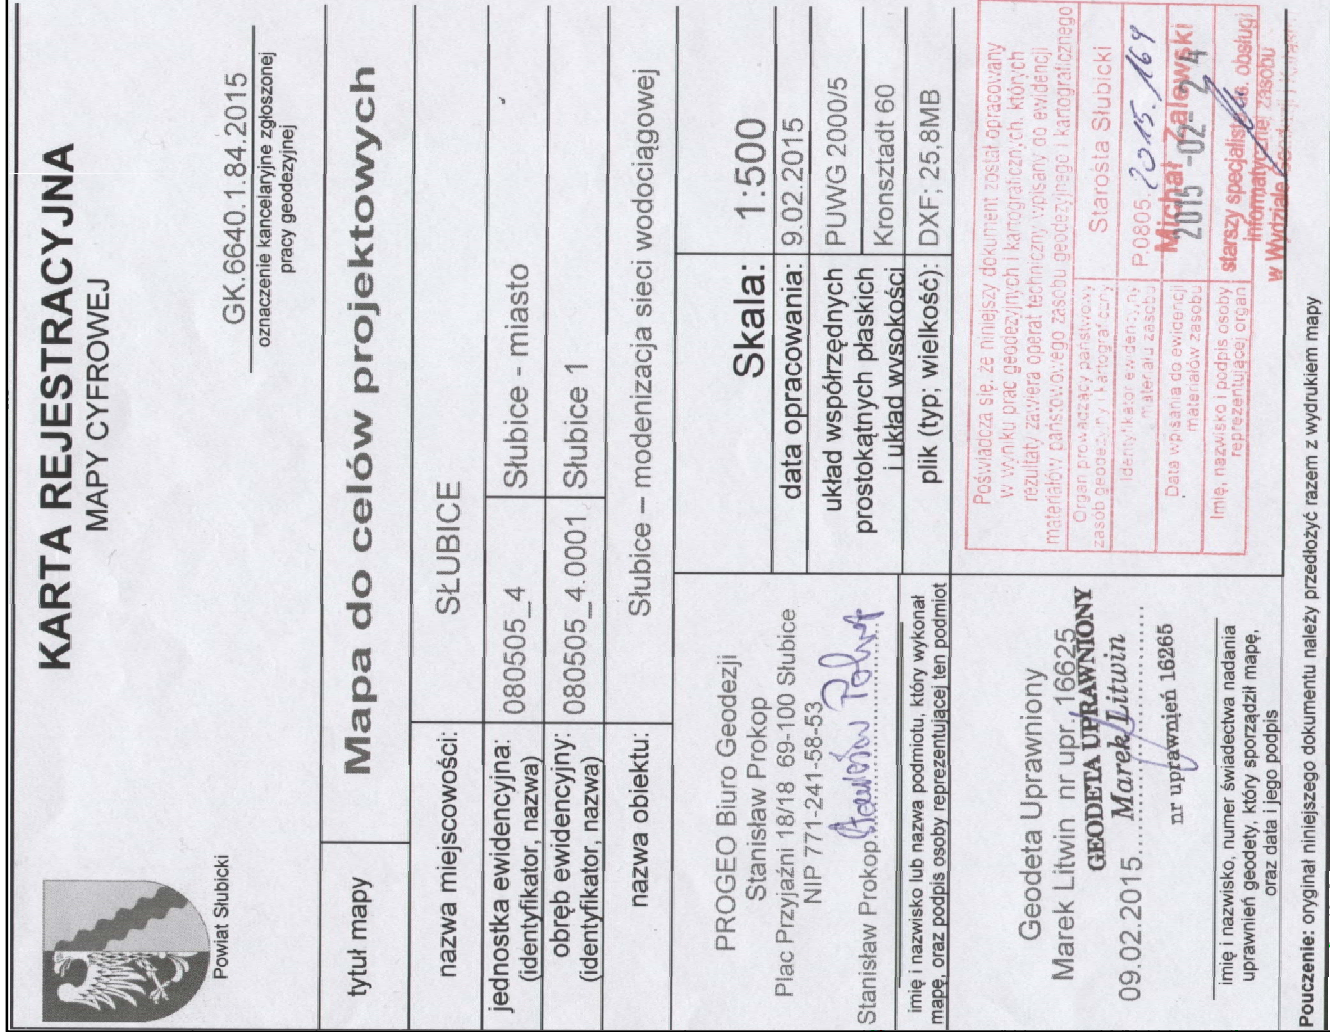 KARTA REJESTRACYJNA
MAPY CYFROWEJ
Powiat Słubicki
GK.6640.1.84.2015
oznaczenie kancelaryjne zgłoszonej
pracy geodezyjnej
tytuł mapy
Mapa do celów projektowych
nazwa miejscowości:
SŁUBICE
jednostka ewidencyjna:
(identyfikator, nazwa)
080505_4
Słubice - miasto
obręb ewidencyjny:
(identyfikator, nazwa)
080505_4.0001
Słubice 1
nazwa obiektu:
Słubice – modenizacja sieci wodociągowej
PROGEO Biuro Geodezji
Stanisław Prokop
Plac Przyjaźni 18/18 69-100 Słubice
NIP 771-241-58-53
Stanisław Prokop
imię i nazwisko lub nazwa podmiotu, który wykonał
mapę, oraz podpis osoby reprezentującej ten podmiot
Skala:
1:500
data opracowania:
9.02.2015
układ współrzędnych
prostokątnych płaskich
i układ wysokości
PUWG 2000/5
Kronsztadt 60
plik (typ; wielkość):
DXF; 25,8MB
Geodeta Uprawniony
Marek Litwin nr upr. 16625
GEODETA UPRAWNIONY
09.02.2015
Marek Litwin
nr uprawnień 16265
imię i nazwisko, numer świadectwa nadania
uprawnień geodety, który sporządził mapę,
oraz data i jego podpis
Poświadcza się, że niniejszy dokument został opracowany
w wyniku prac geodezyjnych i kartograficznych, których
rezultaty zawiera operat techniczny wpisany do ewidencji
materiałów państwowego zasobu geodezyjnego i kartograficznego
Organ prowadzący państwowy
zasób geodezyjny i kartograficzny
Starosta Słubicki
Identyfikator ewidencyjny
materiału zasobu
P.0805.2015.169
Data wpisania do ewidencji
materiałów zasobu
2015 -02- 24
Michał Zalewski
Imię, nazwisko i podpis osoby
reprezentującej organ
starszy specjalista ds. obsługi
informatycznej zasobu
w Wydziale
Pouczenie: oryginał niniejszego dokumentu należy przedłożyć razem z wydrukiem mapy